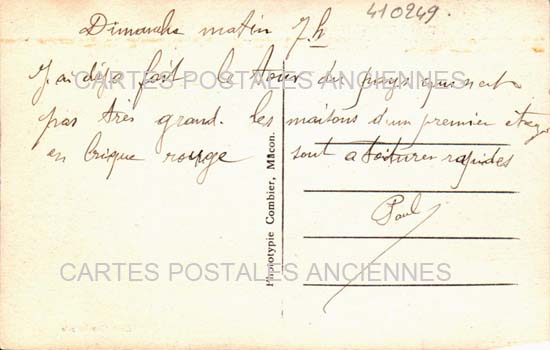 410249.
Dimanche matin 7h
J'ai déja fait le tour du pays qui n'est
pas très grand. les maisons d'un premier étage
en brique rouge sont a toitures rapides
Paul
Phototypie Combier, Mâcon.
CARTES POSTALES ANCIENNES
CARTES POSTALES ANCIENNES